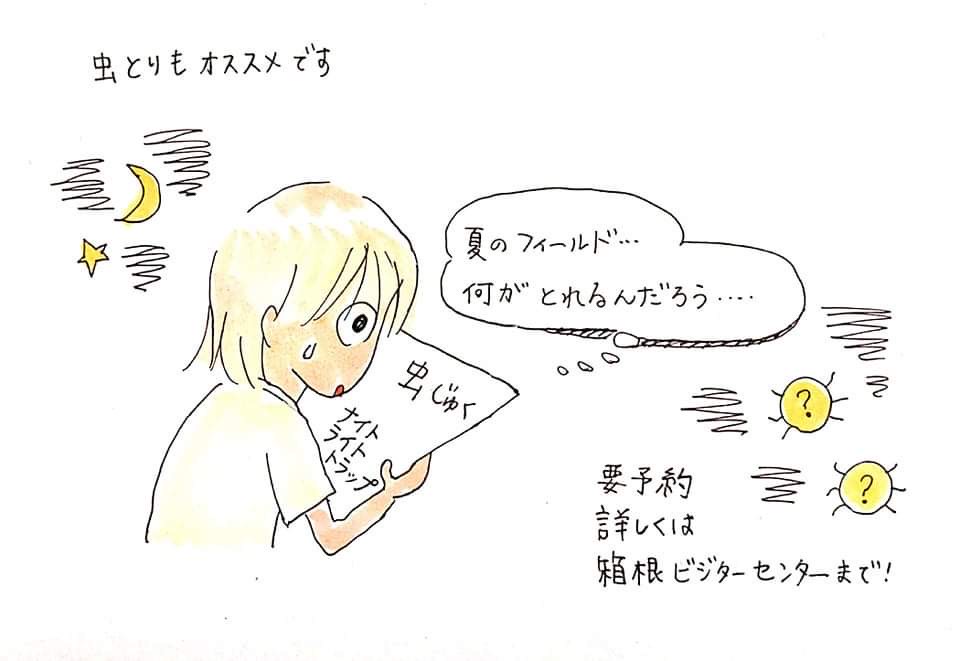 虫とりもオススメです
夏のフィールド…
何がとれるんだろう‥‥
虫じゅく
ナイト
ライト
トラップ
?
?
要予約
詳しくは
箱根ビジターセンターまで!